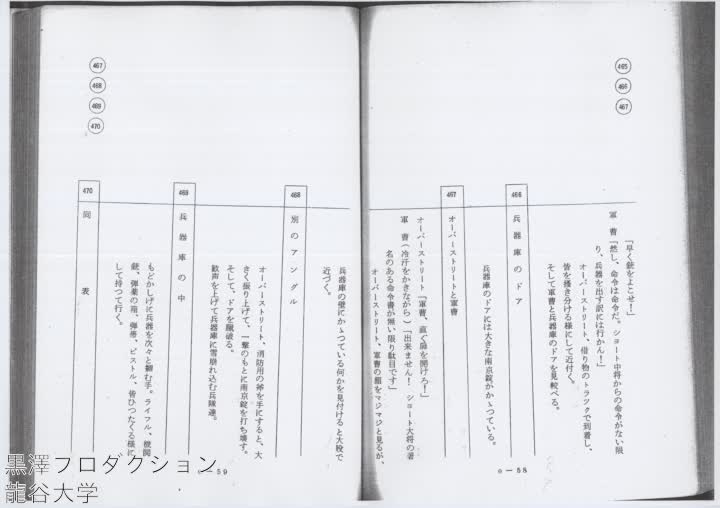 465
466
467
「早く銃をよこせ！」
軍曹「然し、命令は命令だ。ショート中将からの命令がない限
り、兵器を出す訳には行かん！」
オーバーストリート、借り物のトラックで到着し、
皆を掻き分ける様にして近付く。
そして軍曹と兵器庫のドアを見較べる。
466
兵器庫のドア
兵器庫のドアには大きな南京錠がかゝっている。
467
オーバーストリートと軍曹
オーバーストリート「軍曹、直ぐ扉を開けろ！」
軍曹（冷汗をかきながら）「出来ません！ ショート大将の署
名のある命令書が無い限り駄目です」
オーバーストリート、軍曹の顔をマジマジと見るが、
o—58
467
468
469
470
兵器庫の壁にかゝつている何かを見付けると大股で
近づく。
468
別のアングル
オーバーストリート、消防用の斧を手にすると、大
きく振り上げて、一撃のもとに南京錠を打ち壊す。
そして、ドアを蹴破る。
歓声を上げて兵器庫に雪崩れ込む兵隊達。
469
兵器庫の中
もどかしげに兵器を次々と掴む手。ライフル、機関
銃、弾薬の箱、弾帯、ピストル、皆ひつたくる様に
して持つて行く。
470
同 表
—59
黒澤プロダクション
龍谷大学